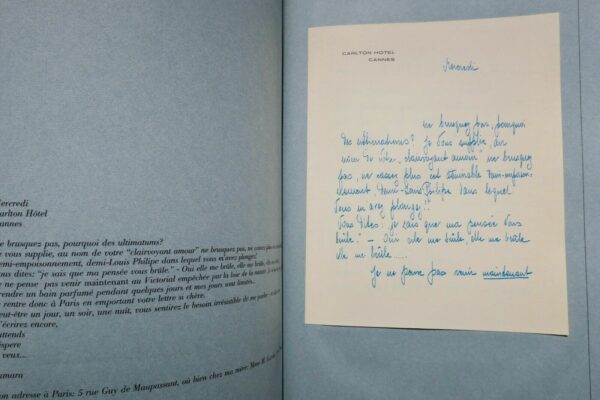 ercredi
arlton Hôtel
annes
e brusquez pas, pourquoi des ultimatums?
e vous supplie, au nom de votre "clairvoyant amour" ne brusquez pas, ne
emi-empoisonnement, demi-Louis Philipe dans lequel vous m'avez plongez!
ous dites: "je sais que ma pensée vous brûle." - Oui elle me brûle, elle me brûle,
e ne pense pas venir maintenant au Victorial empêchée par la
rendre un bain parfumé pendant quelques jours et mes jours sont limités..
e rentre donc à Paris en emportant votre lettre si chère.
eut-être un jour, un soir, une nuit, vous sentirez le besoin irrésistible de me parler
'écrirez encore,
attends
espere
veux...
amara
on adresse à Paris: 5 rue Guy de Maupassant, où bien chez ma mère:
CARLTON HOTEL
CANNES
Mercredi
ne brusquez pas, pourquoi
des ultimatums? Je vous supplie, au
nom de votre "clairvoyant amour" ne brusquez
pas, ne cassez plus cet
demi-Louis Philipe dans lequel
vous m'avez plongez!!
Vous dites: je sais que ma pensée vous
brûle! - Oui elle me brûle, elle me brûle
elle me brûle.....
Je ne pense pas venir maintenant